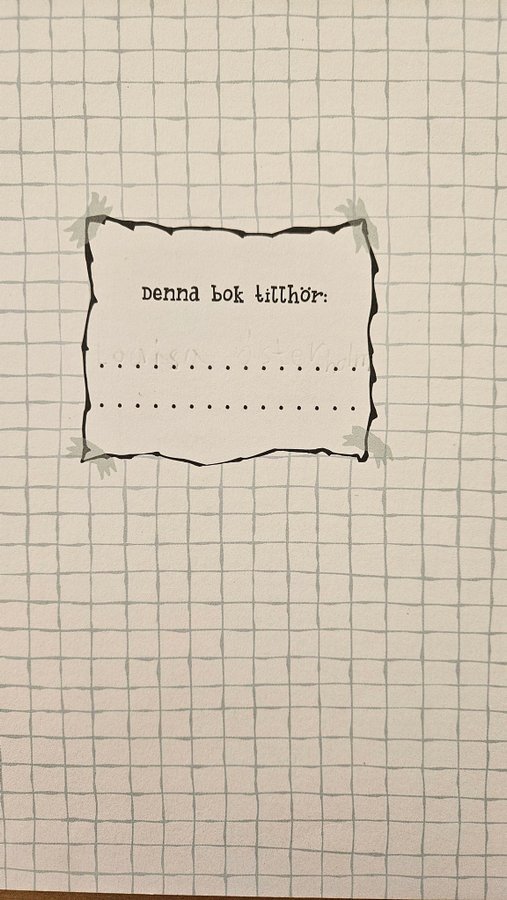 Denna bok tillhör: